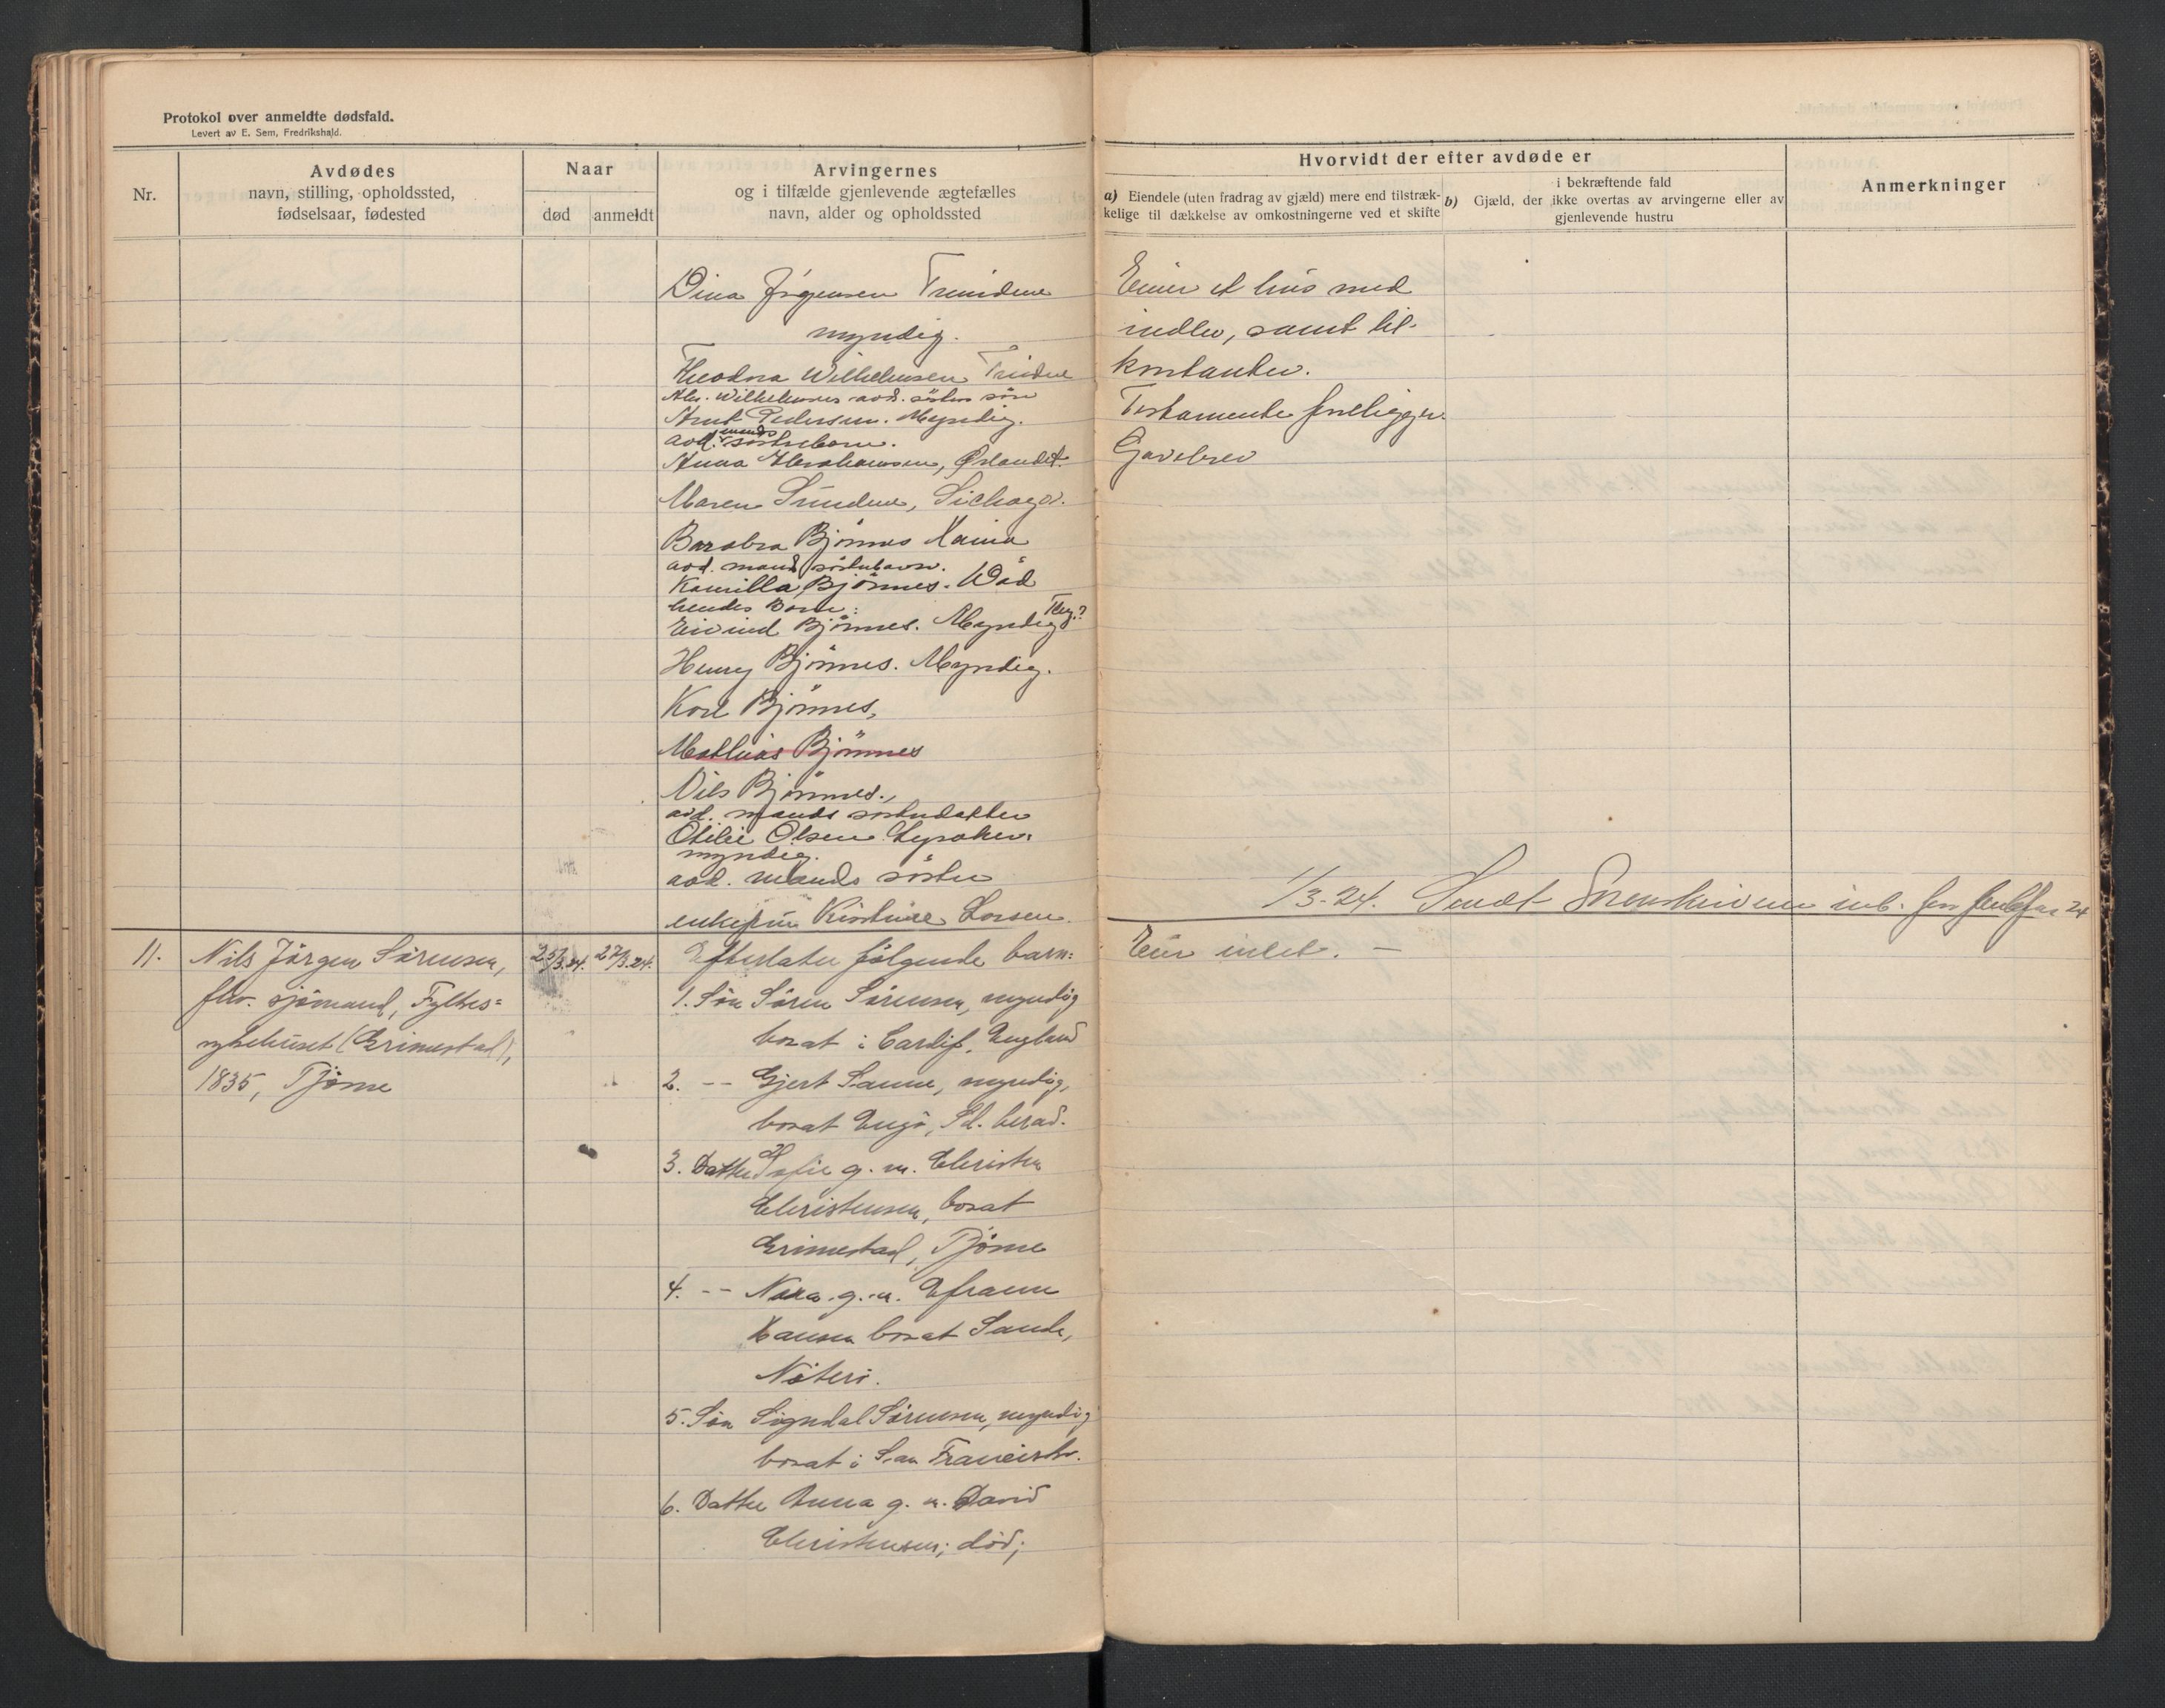 Protokol over anmeldte dødsfald.
Levert av E. Sem, Fredrikshald.
Nr.
Avdødes
navn, stilling, opholdssted,
fødselsaar, fødested
Naar
død
anmeldt
Arvingernes
og i tilfælde gjenlevende ægtefælles
navn, alder og opholdssted
Dina Jörgensen
myndig.
Theodora Wilhelmsen
avd. søsters søn
Arnt Pedersen. Myndig.
avd. mands søstrebarn.
Anna Abrahamsen, Ørlandet.
Maren
Barabra Bjönnes
avd. mands søstrebarn.
Kamilla Bjönnes. Død
hendes Barn:
Eivind Bjönnes. Myndig
Henry Bjönnes. Myndig.
Karl Bjönnes,
Mathias Bjönnes
Nils Bjönnes.,
avd. mands søsterdatter
Otilie Olsen Lysaker.
myndig.
avd. mands søster
enkefru Kristine Larsen.
11.
Nils Jörgen Sörensen,
fhv. sjömand, Fylkes=
sykehuset (Grimestad),
1835, Tjöme
25/3.24.
27/3.24.
Efterlater fölgende barn:
1. Sön Sören Sörensen, myndig
bosat i Cardif, England
2. -- Gjert Sanne, myndig,
bosat Engö, Sd. herad.
3. Datter Sofie g. m. Christen
Christensen, bosat
Grimestad, Tjöme
4. -- Nora g. m. Efraim
Hansen bosat Sande,
Nöterö.
5. Sön Sigvdal Sörensen, myndig
bosat i San Francisko.
6. Datter Anna g. m. David
Christensen; död;
Hvorvidt der efter avdøde er
a) Eiendele (uten fradrag av gjæld) mere end tilstræk-
kelige til dækkelse av omkostningerne ved et skifte
i bekræftende fald
b) Gjæld, der ikke overtas av arvingerne eller av
gjenlevende hustru
Anmerkninger
Eier et hus med
indbo, samt litt
kontanter.
Testamente foreligger.
Gavebrev
1/3-24. Sendt Sorenskriveren inb. for februar 24
Eier intet. —